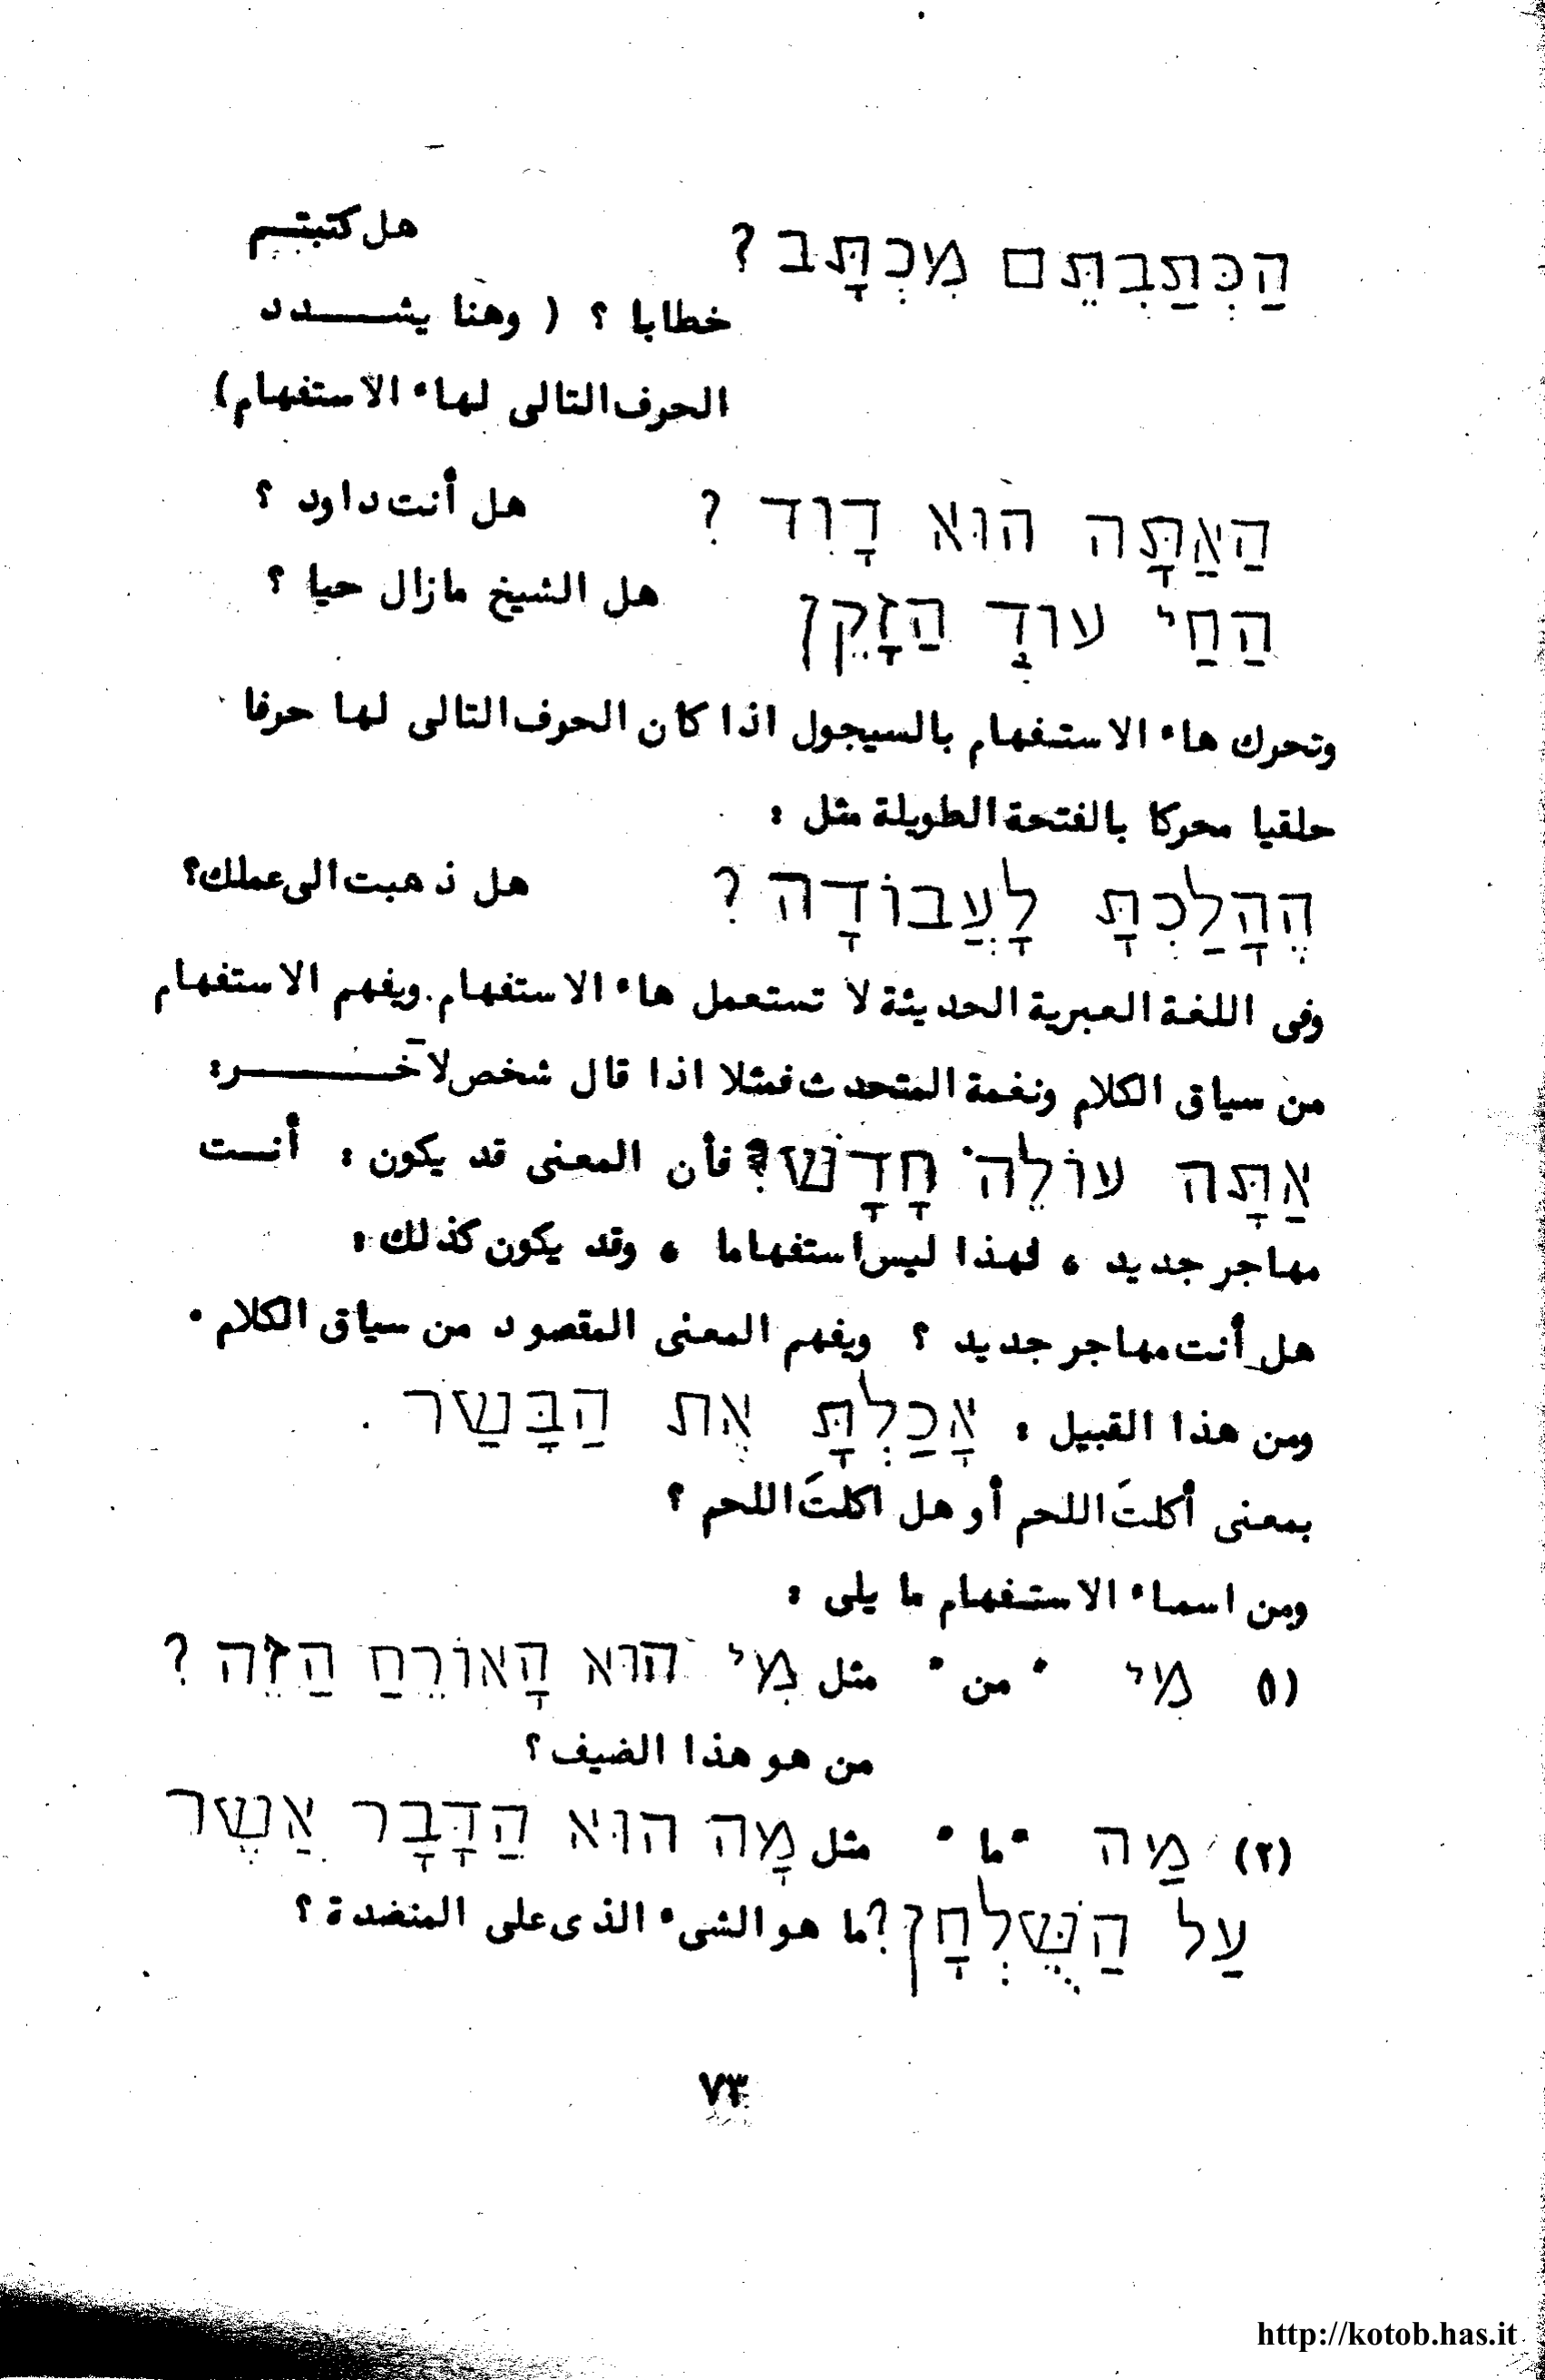 הַכִּתַבְתֵּם מִכְתָּב ? هل كتبتم
خطابا ؟ ( وهنا يشدد
الحرف التالى لهاء الاستفهام)
הַאַתָּה הוּא דָוִד ? هل أنت داود ؟
הַחַי עוֹד הַזָקֵן هل الشيخ مازال حيا ؟
وتحرك هاء الاستفهام بالسيجول اذا كان الحرف التالى لها حرفا
حلقيا محركا بالفتحة الطويلة مثل :
הֶהָלַכְתָּ לָעֲבוֹדָה ? هل ذهبت الى عملك؟
وفى اللغة العبرية الحديثة لا تستعمل هاء الاستفهام. ويفهم الاستفهام
من سياق الكلام ونغمة المتحدث فمثلا اذا قال شخص لآخر:
אַתָּה עוֹלֵה חָדָשׁ? فأن المعنى قد يكون : أنت
مهاجر جديد ، لهذا ليس استفهاما ، وقد يكون كذلك :
هل أنت مهاجر جديد ؟ ويفهم المعنى المقصود من سياق الكلام .
ومن هذا القبيل : אָכַלְתָּ אֶת הַבָּשַר .
بمعنى أكلتَ اللحم أو هل اكلتَ اللحم ؟
ومن اسماء الاستفهام ما يلى :
١) מִי " من " مثل מִי הוּא הָאוֹרֵחַ הַזֵה ?
من هو هذا الضيف ؟
(٢) מַה "ما " مثل מָה הוּא הַדָּבָר אַשֶׁר
עַל הַשֻּׁלְחָן? ما هو الشىء الذى على المنضدة ؟
٧٣
http://kotob.has.it